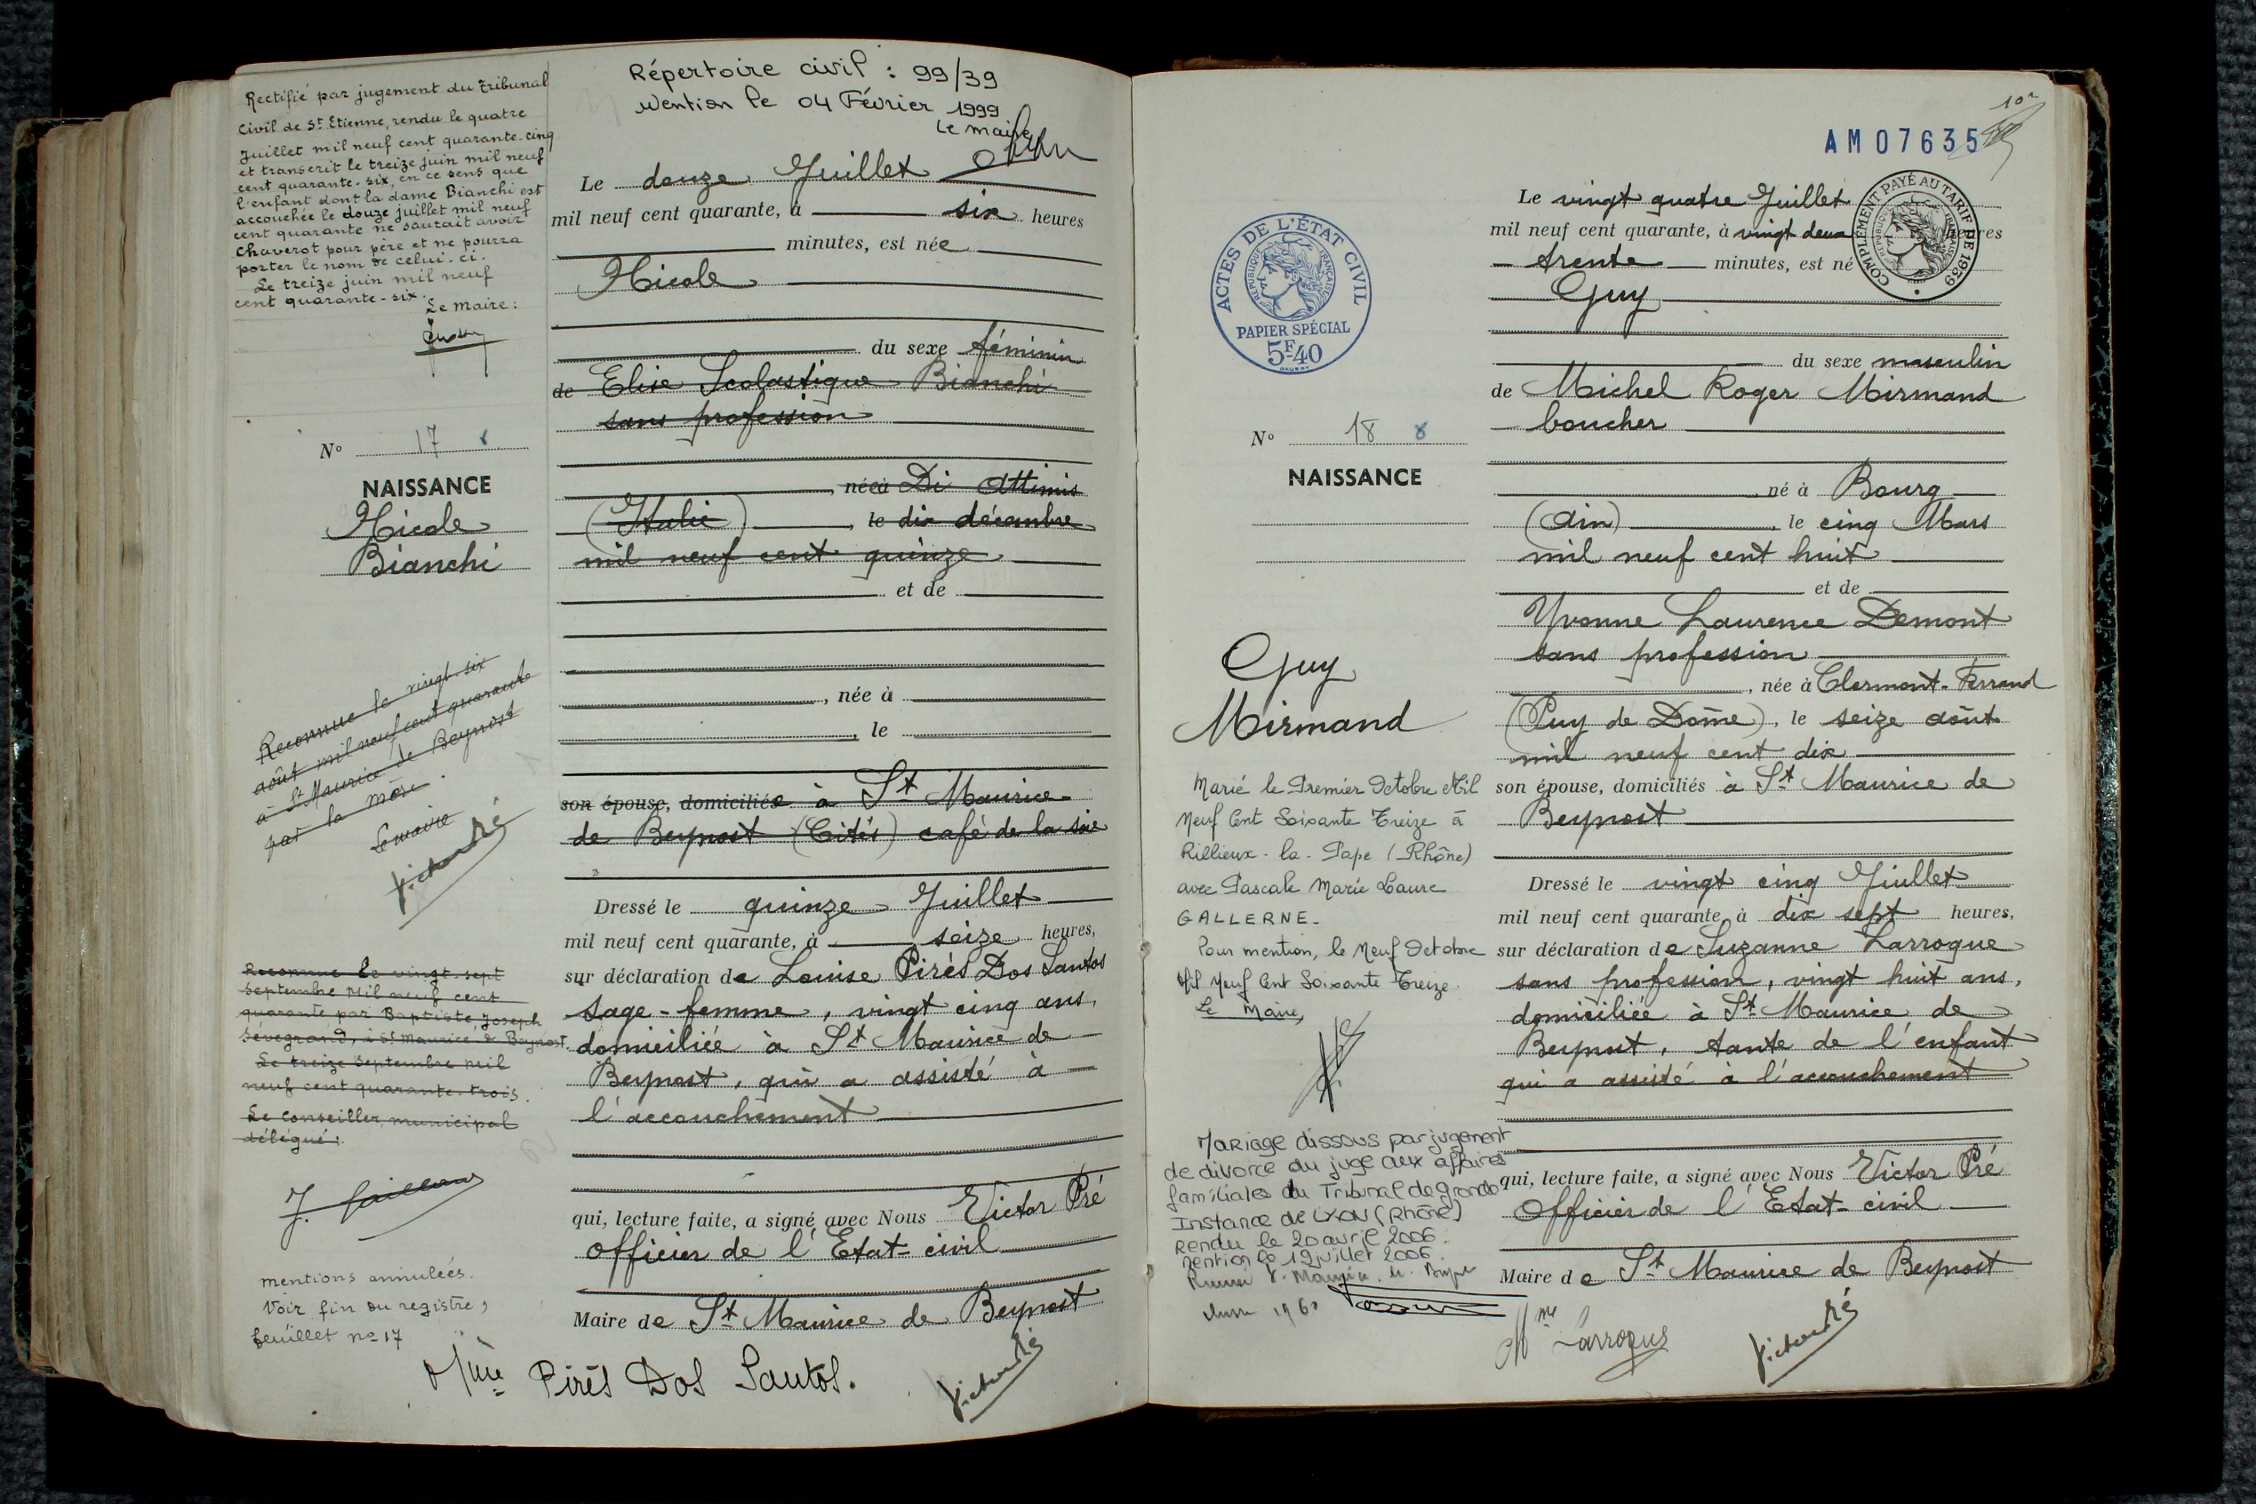 Rectifié par jugement du Tribunal
Civil de St Etienne, rendu le quatre
Juillet mil neuf cent quarante-cinq
et transcrit le treize juin mil neuf
cent quarante-six, en ce sens que
l'enfant dont la dame Bianchi est
accouchée le douze juillet mil neuf
cent quarante ne saurait avoir
Chaverot pour père et ne pourra
porter le nom de celui-ci.
Le treize juin mil neuf
cent quarante-six.
Le Maire :
No 17 8
NAISSANCE
Nicole
Bianchi
Reconnue le vingt-six
août mil neuf cent quarante
à St Maurice de Beynost
par la mère.
Le maire
Victor Pré
Reconnue le vingt-sept
Septembre Mil neuf cent
quarante par Baptiste, Joseph
Sévegrand, à St Maurice de Beynost.
Le treize Septembre mil
neuf cent quarante-trois.
Le Conseiller municipal
délégué :
mentions annulées.
Voir fin du registre,
feuillet no 17
Répertoire civil : 99/39
Mention le 04 Février 1999
Le maire
Le douze Juillet
mil neuf cent quarante, à six heures
minutes, est née
Nicole
du sexe féminin
de Elise Scolastique Bianchi
sans profession
née à Di Attimis
(Italie), le dix décembre
mil neuf cent quinze
et de
, née à
, le
son épouse, domiciliée à St Maurice
de Beynost (Cités) café de la soie
Dressé le quinze Juillet
mil neuf cent quarante, à seize heures,
sur déclaration de Louise Pirès Dos Santos
sage-femme, vingt cinq ans,
domiciliée à St Maurice de
Beynost, qui a assisté à
l'accouchement
qui, lecture faite, a signé avec Nous Victor Pré
officier de l'Etat-civil
Maire de St Maurice de Beynost
Mme Pirès Dos Santos.
Victor Pré
AM07635
ACTES DE L'ÉTAT CIVIL
RÉPUBLIQUE FRANÇAISE
PAPIER SPÉCIAL
5F40
COMPLÉMENT PAYÉ AU TARIF DE 1939
RÉPUBLIQUE FRANÇAISE
No 18 8
NAISSANCE
Guy
Mirmand
Marié le Premier Octobre Mil
Neuf Cent Soixante Treize à
Rillieux-la-Pape (Rhône)
avec Pascale Marie Laure
GALLERNE-
Pour mention, le Neuf Octobre
Mil Neuf Cent Soixante Treize.
Le Maire,
Mariage dissous par jugement
de divorce du juge aux affaires
familiales du Tribunal de Grande
Instance de LYON (Rhône)
Rendu le 20 avril 2006.
Mention le 19 juillet 2006.
Le vingt quatre Juillet
mil neuf cent quarante, à vingt deux heures
trente minutes, est né
Guy
du sexe masculin
de Michel Roger Mirmand
boucher
né à Bourg
(Ain), le cinq Mars
mil neuf cent huit
et de
Yvonne Laurence Demont
sans profession
, née à Clermont-Ferrand
(Puy de Dôme), le seize août
mil neuf cent dix
son épouse, domiciliés à St Maurice de
Beynost
Dressé le vingt cinq Juillet
mil neuf cent quarante, à dix sept heures,
sur déclaration de Suzanne Larroque
sans profession, vingt huit ans,
domiciliée à St Maurice de
Beynost, tante de l'enfant
qui a assisté à l'accouchement
qui, lecture faite, a signé avec Nous Victor Pré
officier de l'Etat-civil
Maire de St Maurice de Beynost
Mme Larroque
Victor Pré